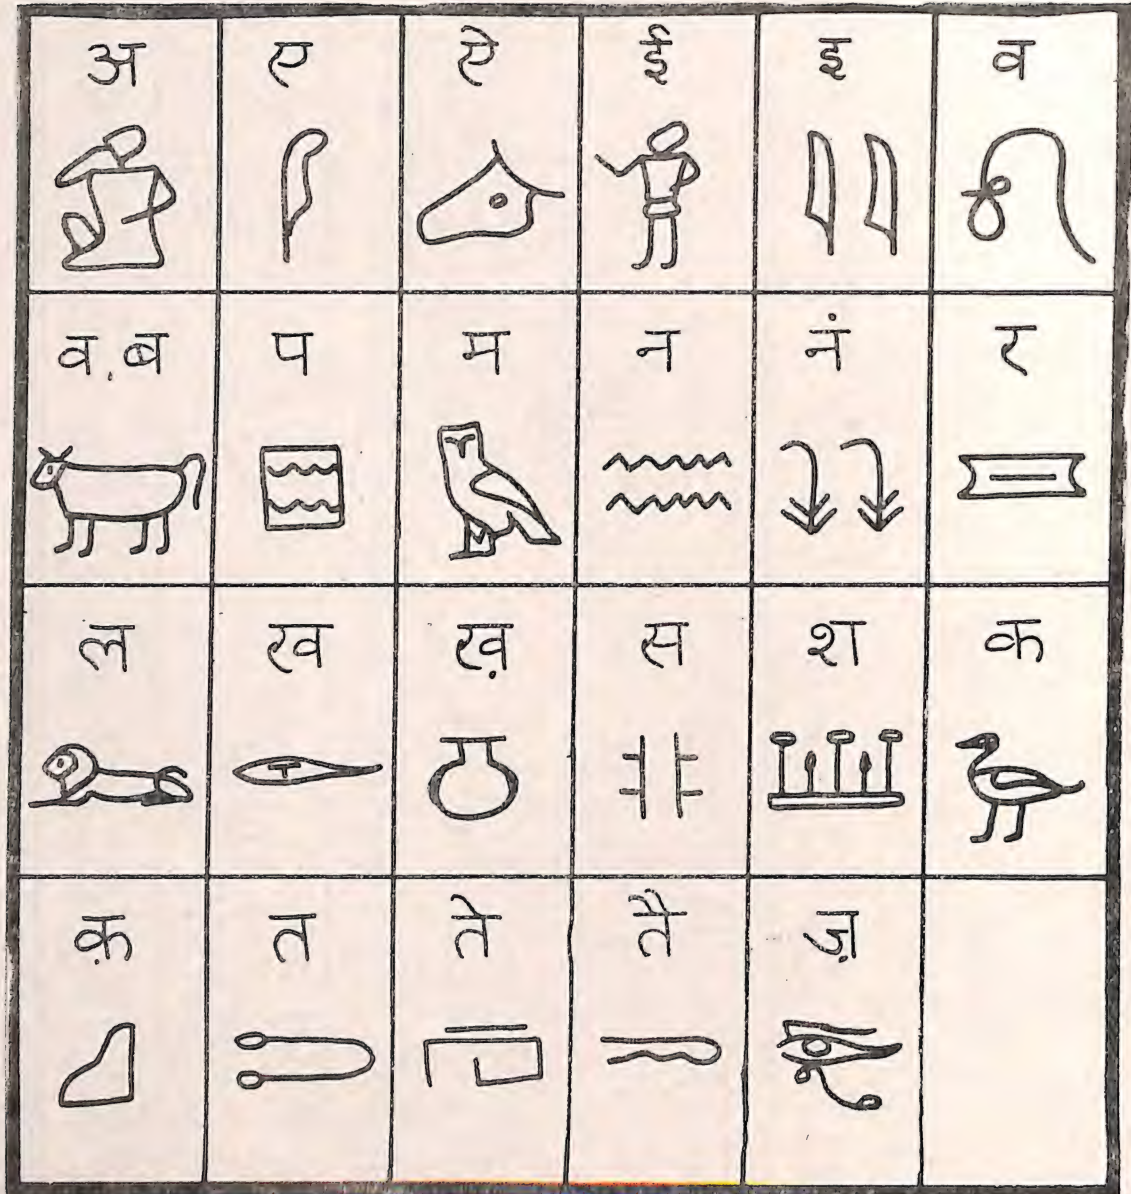 अ ए ऐ ई इ व
व.ब प म न नं र
ल ख ख़ स श क
क़ त ते तै ज़